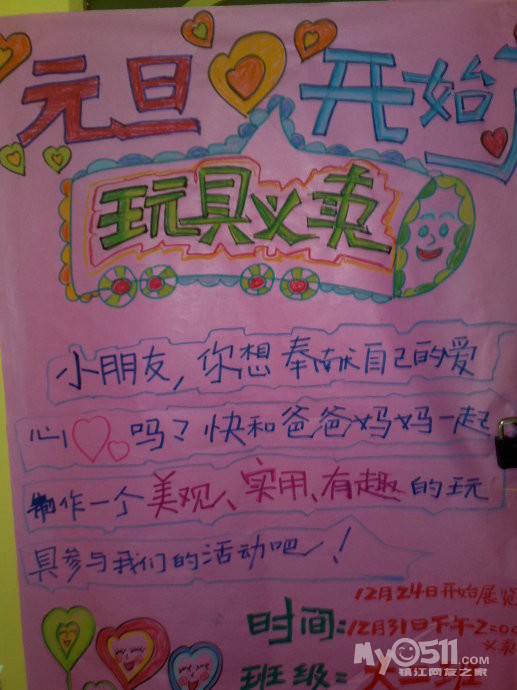 元旦 开始了
玩具义卖
小朋友，你想奉献自己的爱
心吗？快和爸爸妈妈一起
制作一个美观、实用、有趣的玩
具参与我们的活动吧！
12月24日开始展览
时间：12月31日下午2:00
义卖
班级：
My0511.com
镇江网友之家